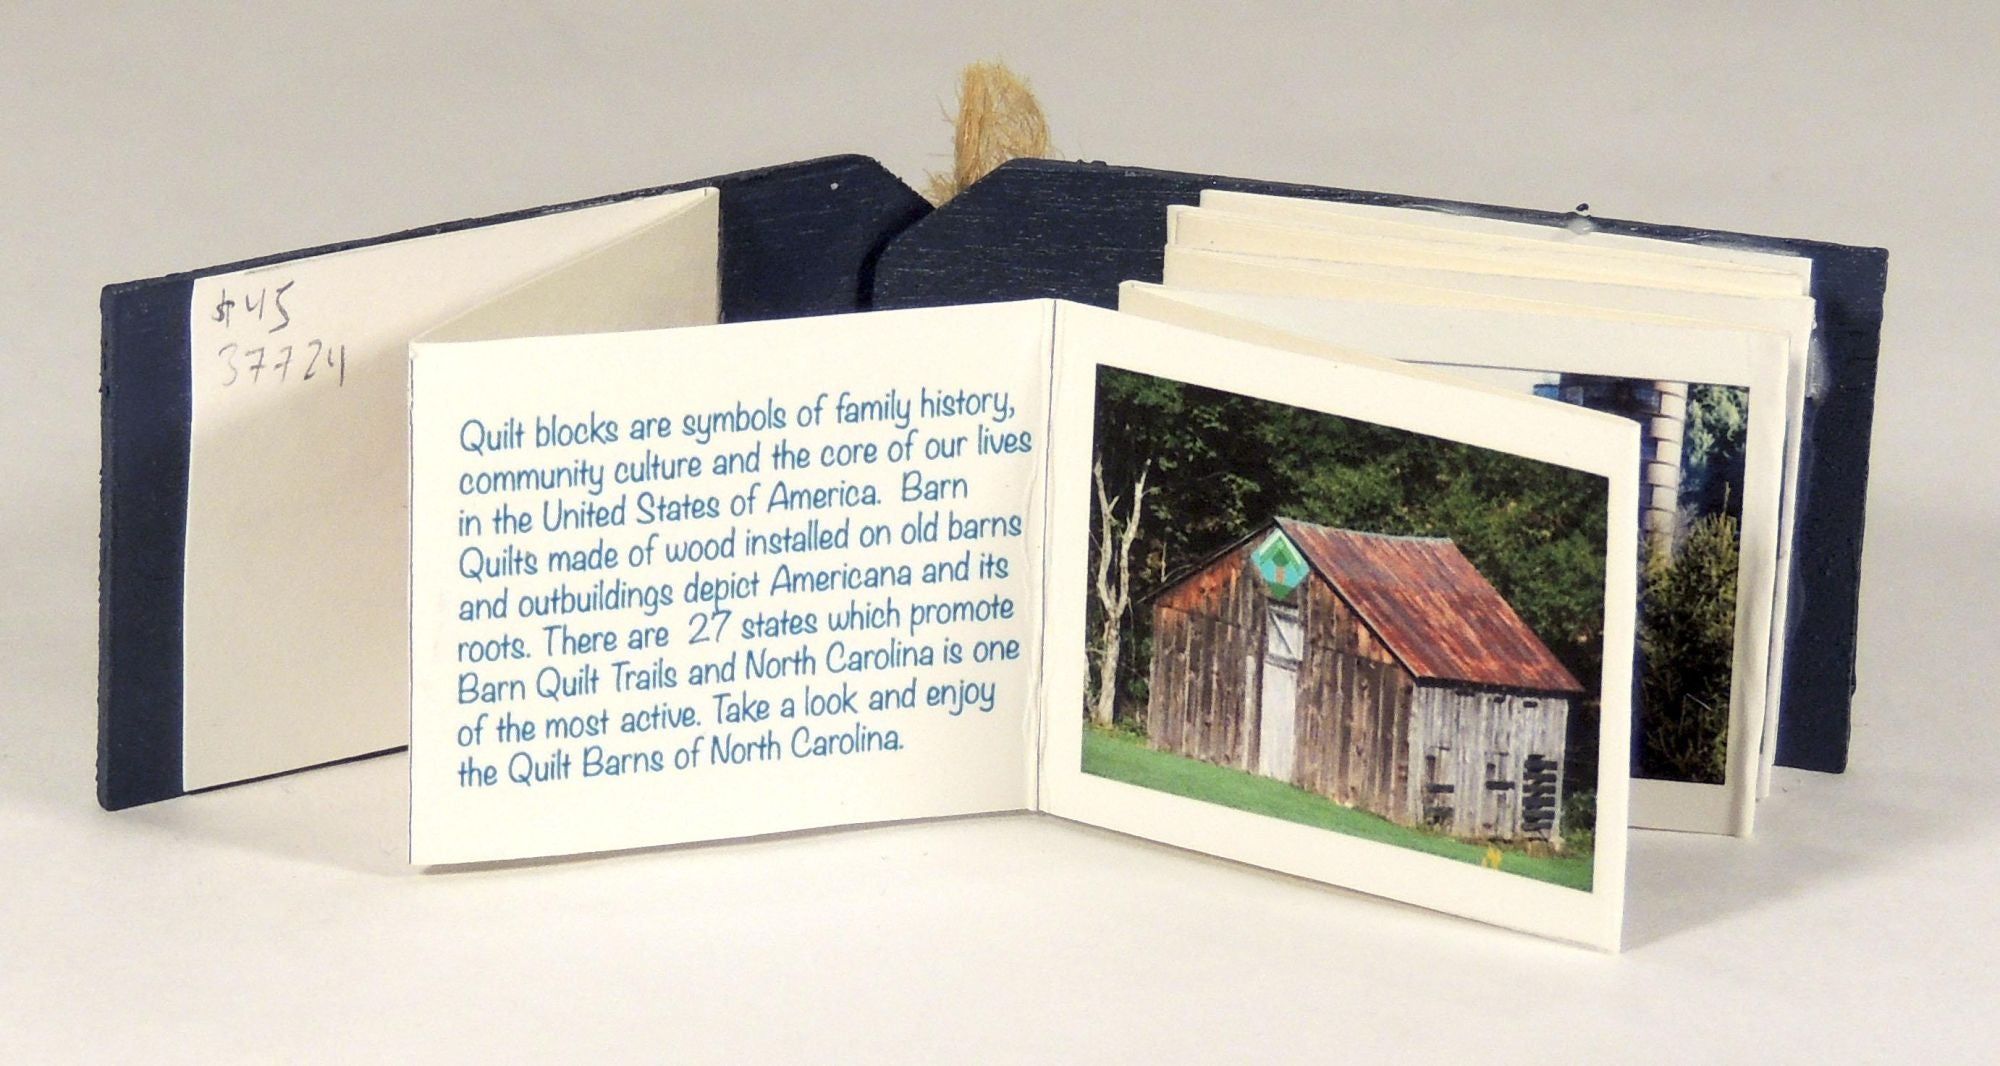 $45
37724
Quilt blocks are symbols of family history,
community culture and the core of our lives
in the United States of America. Barn
Quilts made of wood installed on old barns
and outbuildings depict Americana and its
roots. There are 27 states which promote
Barn Quilt Trails and North Carolina is one
of the most active. Take a look and enjoy
the Quilt Barns of North Carolina.